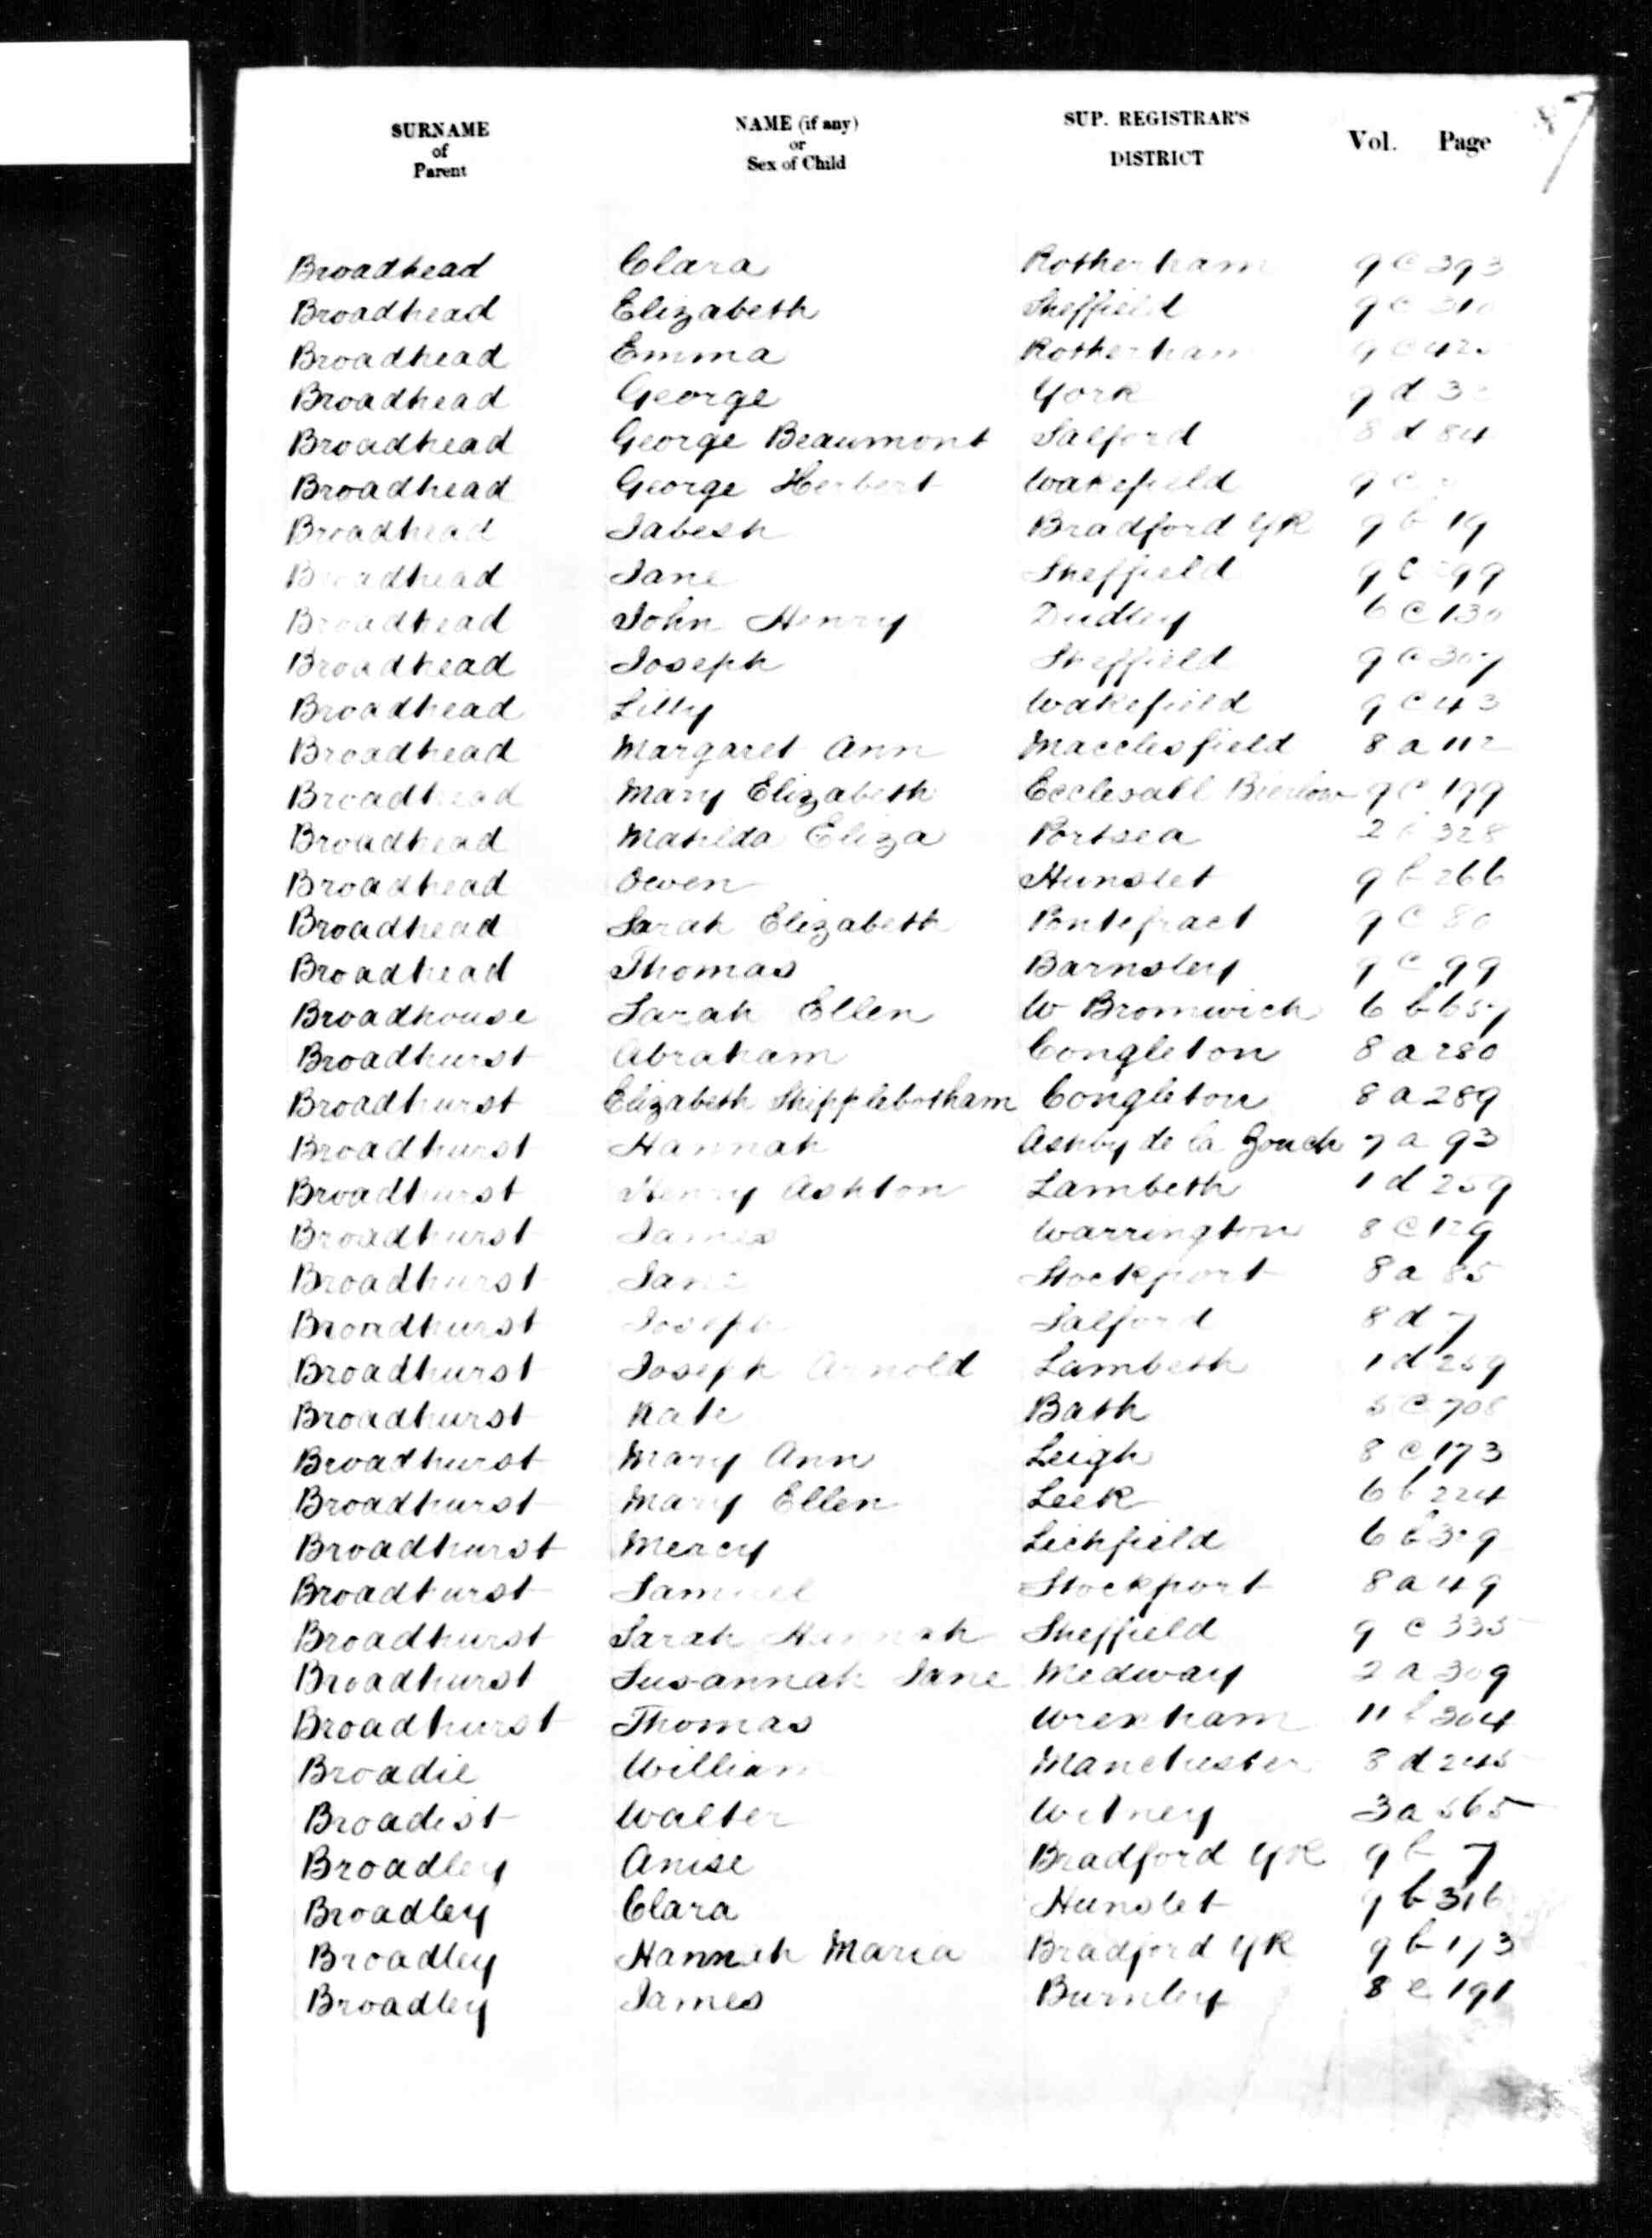 SURNAME of Parent NAME (if any) or Sex of Child SUP. REGISTRAR'S DISTRICT Vol. Page
Broadhead Clara Rotherham 9 c 393
Broadhead Elizabeth Sheffield 9 c
Broadhead Emma Rotherham 9 c
Broadhead George York 9 d
Broadhead George Beaumont Salford 8 d 84
Broadhead George Herbert Wakefield 9 c
Broadhead Jabesh Bradford YR 9 b 19
Broadhead Jane Sheffield 9 c
Broadhead John Henry Dudley 6 c 130
Broadhead Joseph Sheffield 9 c 307
Broadhead Lilly Wakefield 9 c 43
Broadhead Margaret Ann Macclesfield 8 a 112
Broadhead Mary Elizabeth Ecclesall Bierlow 9 c 199
Broadhead Matilda Eliza Portsea 2 b 328
Broadhead Owen Hunslet 9 b 266
Broadhead Sarah Elizabeth Pontefract 9 c 80
Broadhead Thomas Barnsley 9 c 99
Broadhouse Sarah Ellen W Bromwich 6 b 657
Broadhurst Abraham Congleton 8 a 280
Broadhurst Elizabeth Shipplebotham Congleton 8 a 289
Broadhurst Hannah Ashby de la Zouch 7 a 93
Broadhurst Henry Ashton Lambeth 1 d 259
Broadhurst James Warrington 8 c 129
Broadhurst Jane Stockport 8 a 85
Broadhurst Joseph Salford 8 d 7
Broadhurst Joseph Arnold Lambeth 1 d 259
Broadhurst Kate Bath 5 c 708
Broadhurst Mary Ann Leigh 8 c 173
Broadhurst Mary Ellen Leek 6 b 224
Broadhurst Mercy Lichfield 6 b 379
Broadhurst Samuel Stockport 8 a 49
Broadhurst Sarah Hannah Sheffield 9 c 335
Broadhurst Susannah Jane Medway 2 a 309
Broadhurst Thomas Wrexham 11 b 304
Broadie William Manchester 8 d 245
Broadist Walter Witney 3 a 565
Broadley Anise Bradford YR 9 b 7
Broadley Clara Hunslet 9 b 316
Broadley Hannah Maria Bradford YR 9 b 173
Broadley James Burnley 8 e 191